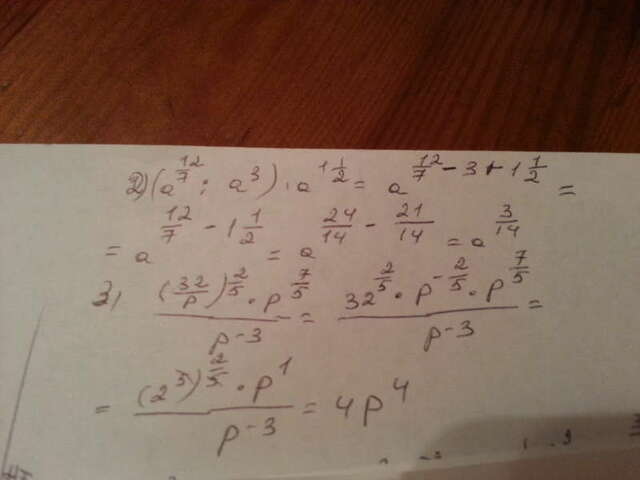 2) (a^{\frac{12}{7}} : a^3) · a^{1\frac{1}{2}} = a^{\frac{12}{7} - 3 + 1\frac{1}{2}} =
= a^{\frac{12}{7} - 1\frac{1}{2}} = a^{\frac{24}{14} - \frac{21}{14}} = a^{\frac{3}{14}}
3, \frac{(\frac{32}{p})^{\frac{2}{5}} · p^{\frac{7}{5}}}{p^{-3}} = \frac{32^{\frac{2}{5}} · p^{-\frac{2}{5}} · p^{\frac{7}{5}}}{p^{-3}} =
= \frac{(2^5)^{\frac{2}{5}} · p^1}{p^{-3}} = 4p^4